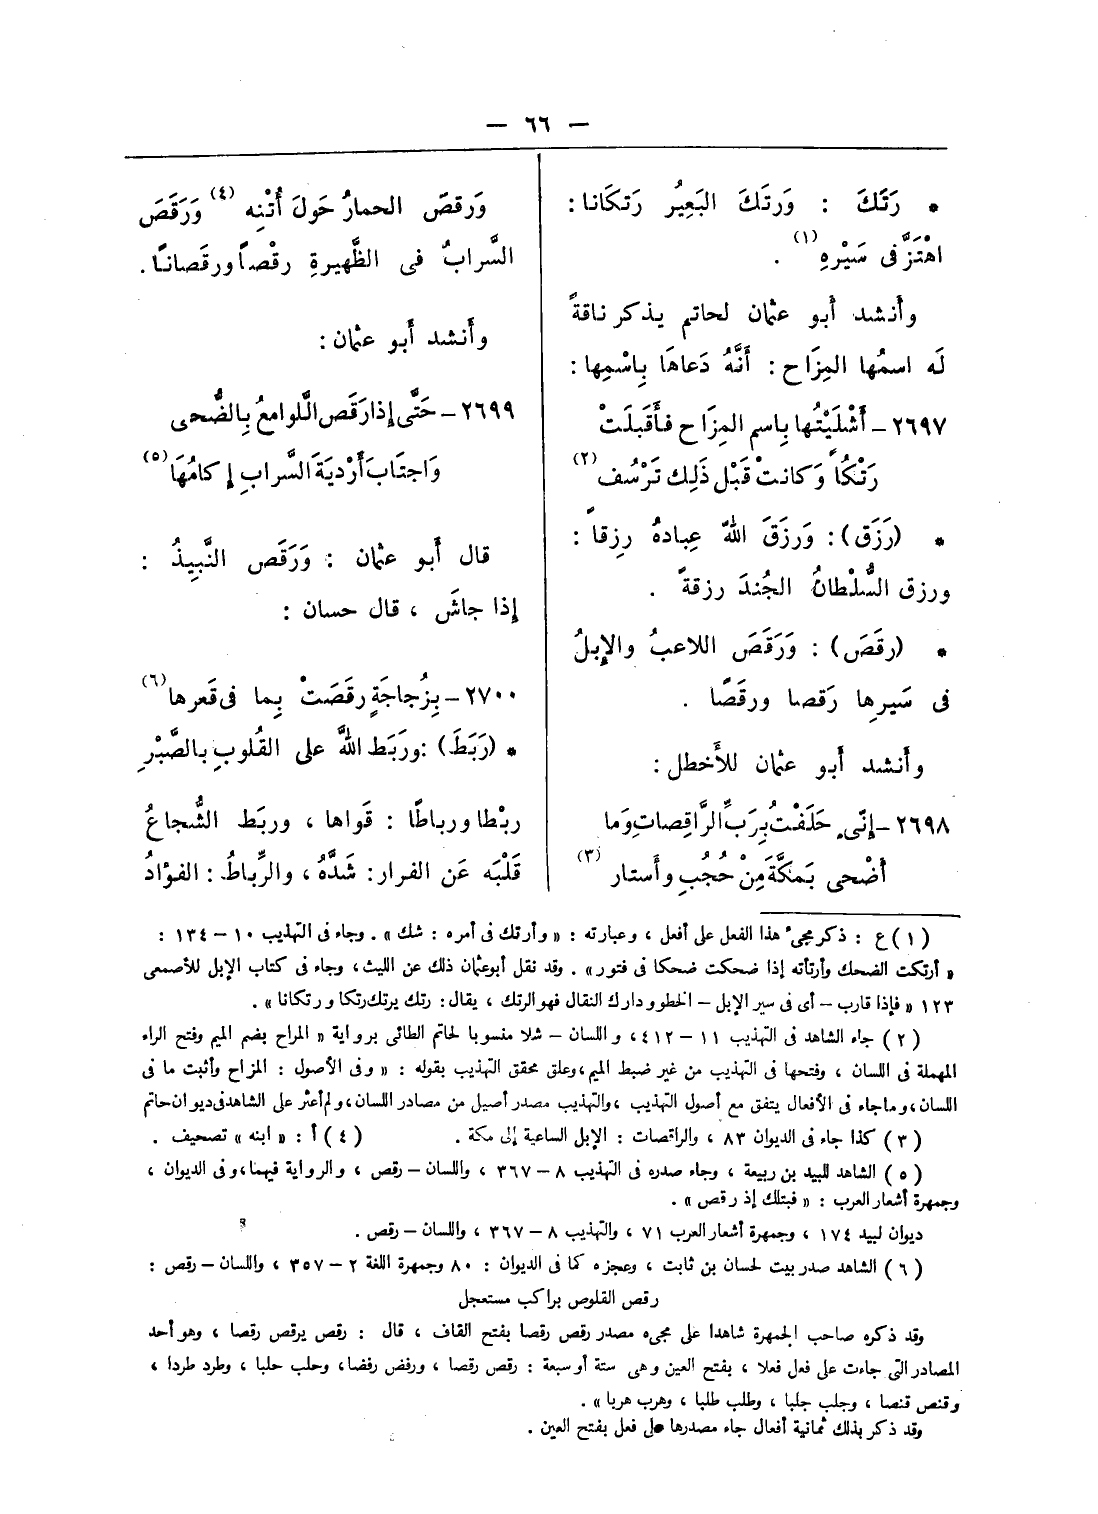 — ٦٦ —
* رَتَكَ : وَرتَكَ البَعِيُر رَتكَانا :
اهْتَزَّ فى سَيْرهِ (١) .
وأَنشد أَبو عثمان لحاتم يذكر ناقةً
لَه اسمُها المِزَاح : أَنَّهُ دَعاهَا بِاسْمِها :
٢٦٩٧ – أَشْلَيْتُها بِاسمِ المِزَاحِ فأَقبَلَتْ
رَتْكاً وَكانتْ قَبْل ذَلِك تَرْسُف (٢)
* (رَزَق) : وَرزَقَ اللهُ عِبادهُ رِزقاً :
ورزق السُّلْطانُ الجُندَ رزقةً .
* (رقَصَ) : وَرَقَصَ اللاعبُ والإِبلُ
فى سَيرِها رَقصا ورقَصًا .
وأَنشد أَبو عثمان للأَخطل :
٢٦٩٨ – إنّى حَلَفْتُ بِرَبِّ الرَّاقِصاتِ وَما
أَضْحى بَمكَّةَ مِنْ حُجُبِ وأَستار (٣)
وَرقصَ الحمارُ حَولَ أُتْنِه (٤) وَرَقَصَ
السَّرابُ فى الظَّهيرةِ رقْصاً ورقَصانًا .
وأَنشد أَبو عثمان :
٢٦٩٩ – حَتَّى إذا رَقَص الَّلوامعُ بِالضُّحى
وَاجتَابَ أَرْديَةَ السَّرابِ إكامُهَا (٥)
قال أَبو عثمان : وَرَقَص النَّبِيذُ :
إِذا جاشَ ، قال حسان :
٢٧٠٠ – بِزُجاجَةٍ رقَصَتْ بِما فى قَعرها (٦)
* (رَبَطَ) : وربَط اللهُ على القُلوبِ بالصَّبْرِ
ربْطا ورباطًا : قَواها ، وربَط الشُّجاعُ
قَلْبَه عَن الفرار : شَدَّهُ ، والرِّباطُ : الفؤادُ
(١) ع : ذكر مجىء هذا الفعل على أفعل ، وعبارته : « وأرتك فى أمره : شك » . وجاء فى التهذيب ١٠ – ١٣٤ :
« أرتكت الضحك وأرتأته إذا ضحكت ضحكا فى فتور » . وقد نقل أبوعثمان ذلك عن الليث ، وجاء فى كتاب الإبل للأصمعى
١٢٣ « فإذا قارب – أى فى سير الإبل – الخطو ودارك النقال فهو الرتك ، يقال : رتك يرتك رتكا ورتكانا » .
(٢) جاء الشاهد فى التهذيب ١١ – ٤١٢ ، واللسان – شلا منسوبا لحاتم الطائى برواية « المراح بضم الميم وفتح الراء
المهملة فى اللسان ، وفتحها فى التهذيب من غير ضبط الميم ، وعلق محقق التهذيب بقوله : « وفى الأصول : المزاح وأثبت ما فى
اللسان ، وماجاء فى الأفعال يتفق مع أصول التهذيب ، والتهذيب مصدر أصيل من مصادر اللسان ، ولم أعثر على الشاهد فى ديوان حاتم
(٣) كذا جاء فى الديوان ٨٣ ، والراقصات : الإبل الساعية إلى مكة . (٤) أ : « ابنه » تصحيف .
(٥) الشاهد للبيد بن ربيعة ، وجاء صدره فى التهذيب ٨ – ٣٦٧ ، واللسان – رقص ، والرواية فيهما ، وفى الديوان ،
وجمهرة أشعار العرب : « فبتلك إذ رقص » .
ديوان لبيد ١٧٤ ، وجمهرة أشعار العرب ٧١ ، والتهذيب ٨ – ٣٦٧ ، واللسان – رقص .
(٦) الشاهد صدر بيت لحسان بن ثابت ، وعجزه كما فى الديوان : ٨٠ وجمهرة اللغة ٢ – ٣٥٧ ، واللسان – رقص :
رقص القلوص براكب مستعجل
وقد ذكره صاحب الجمهرة شاهدا على مجىء مصدر رقص رقصا بفتح القاف ، قال : رقص يرقص رقصا ، وهو أحد
المصادر التى جاءت على فعل فعلا ، بفتح العين وهى ستة أو سبعة : رقص رقصا ، ورفض رفضا ، وحلب حلبا ، وطرد طردا ،
وقنص قنصا ، وجلب جلبا ، وطلب طلبا ، وهرب هربا » .
وقد ذكر بذلك ثمانية أفعال جاء مصدرها على فعل بفتح العين .